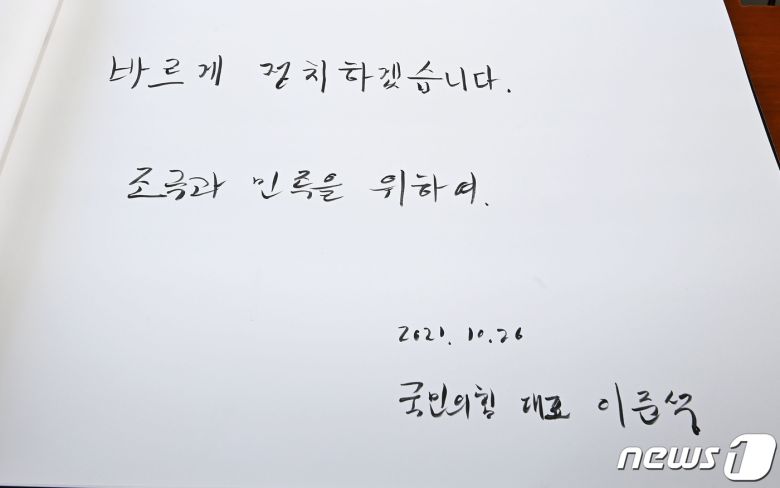 바르게 정치하겠습니다.
조국과 민족을 위하여.
2021. 10. 26
국민의힘 대표 이준석
news1